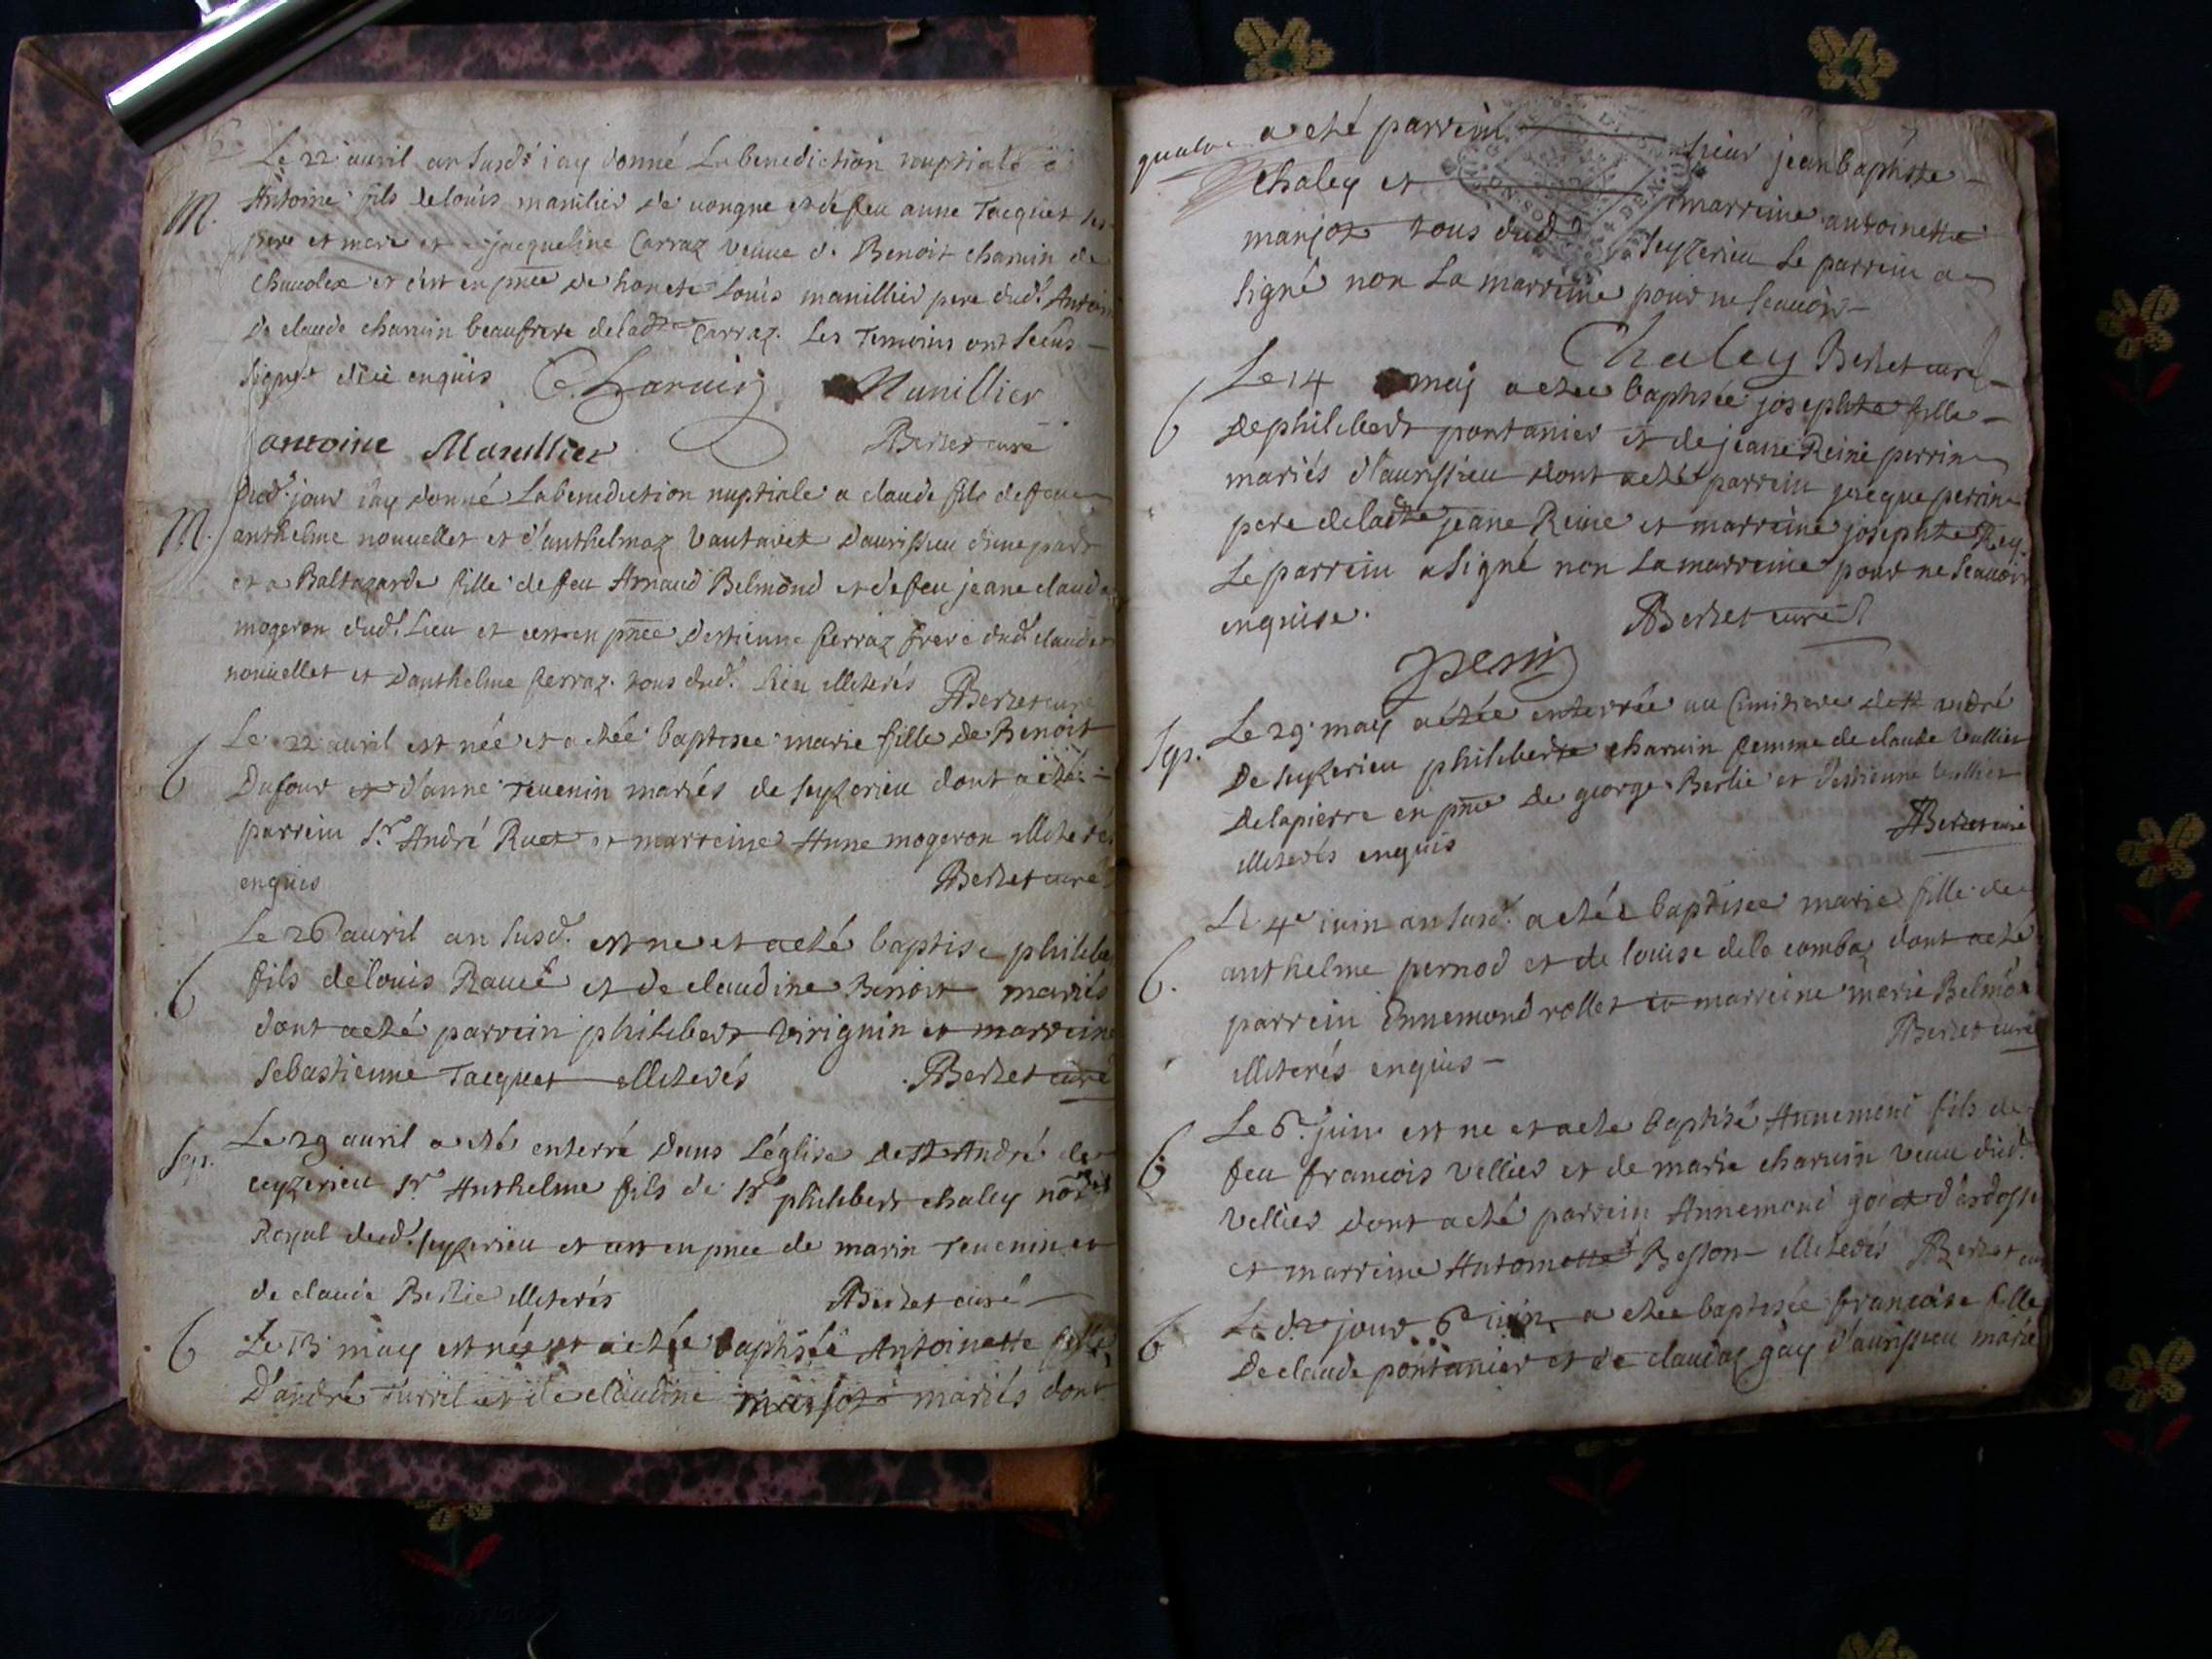 6
Le 22 auril an susd.t i'ay donné La benediction nuptiale a
M.
Antoine fils de louis manilier de uongne et de feu anne Tacquet ses
pere et mere et a jacqueline Carraz veuue de Benoit charuin de
et c'est en pnce de honete louis manillier pere dud.t Antoin
De claude charuin beaufrere de ladte Carraz. Les Temoins ont
signé enquis C. Charuin Manillier
antoine Manillier Berzet curé
M.
Dud.t jour i'ay donné La benediction nuptiale a claude fils de feu
anthelme nouuellet et d'anthelmaz Vautaret d'aurissieu d'une part
et a Baltazarde fille de feu Arnaud Belmond et de feu jeane claude
mogeron dud.t Lieu et c'est en pnce d'estienne ferraz frere dud.t claude
nouuellet et d'anthelme ferraz. tous dud.t lieu illiterés
Berzet curé
b
Le 22 auril est née et a etée baptisee marie fille de Benoit
Dufour et d'anne Teuenin mariés de seyzerieu dont a été
parrein Sr. André Ruet et marreine Anne mogeron illiterés
enquis Berzet curé
b
Le 26 auril an susd.t est ne et a eté baptise philibe
fils de louis Rauet et de claudine Benoit mariés
dont a eté parrein philibert virignin et marreine
Sebastienne Tacquet illiterés Berzet curé
Sep.
Le 29 auril a eté enterré dans L'église de St André de
ceyzerieu Sr. Anthelme fils de Sr. philibert chaley
Royal dud.t seyzerieu et c'est en pnce de marin Teuenin et
de claude Berlie illiterés Berzet curé
b
Le 13 may est née et a etée baptisée Antoinette fille
D'andré Turrel et de claudine marjoz mariés dont
7
a eté parrein sieur jean baptiste
chaley et marreine antoinette
marjoz tous dud.t seyzerieu Le parrein a
signé non La marreine pour ne scauoir
Chaley Berzet curé
b
Le 14 may a etee baptisée josephte fille
de philibert pontanier et de jeane Reine perrin
mariés d'aurissieu dont a eté parrein jacque perrin
pere de ladte jeane Reine et marreine josephte Rey
Le parrein a signé non La marreine pour ne scauoir
enquise. Berzet curé
perrin
Sep.
Le 29 may a etée enterrée au Cimitiere de St andré
De seyzerieu philiberte charuin femme de claude vullier
delapierre en pnce de george Berlie et d'estienne vullier
illiterés enquis Berzet curé
b.
Le 4e iuin an susd.t a etée baptisee marie fille de
anthelme pernod et de louise dela combaz dont a eté
parrein Ennemond rollet et marreine marie Belmon
illiterés enquis Berzet curé
b
Le 6.e juin est ne et a ete baptisé Annemond fils de
feu francois vellier et de marie charuin veuue dud.t
vellier dont a eté parrein Annemond goiet d'ardosse
et marreine Antoinette Besson illiterés Berzet cu
b
Le d.t jour 6e iuin a etee baptisée francoise fille
De claude pontanier et de claudaz gay d'aurissieu mariés